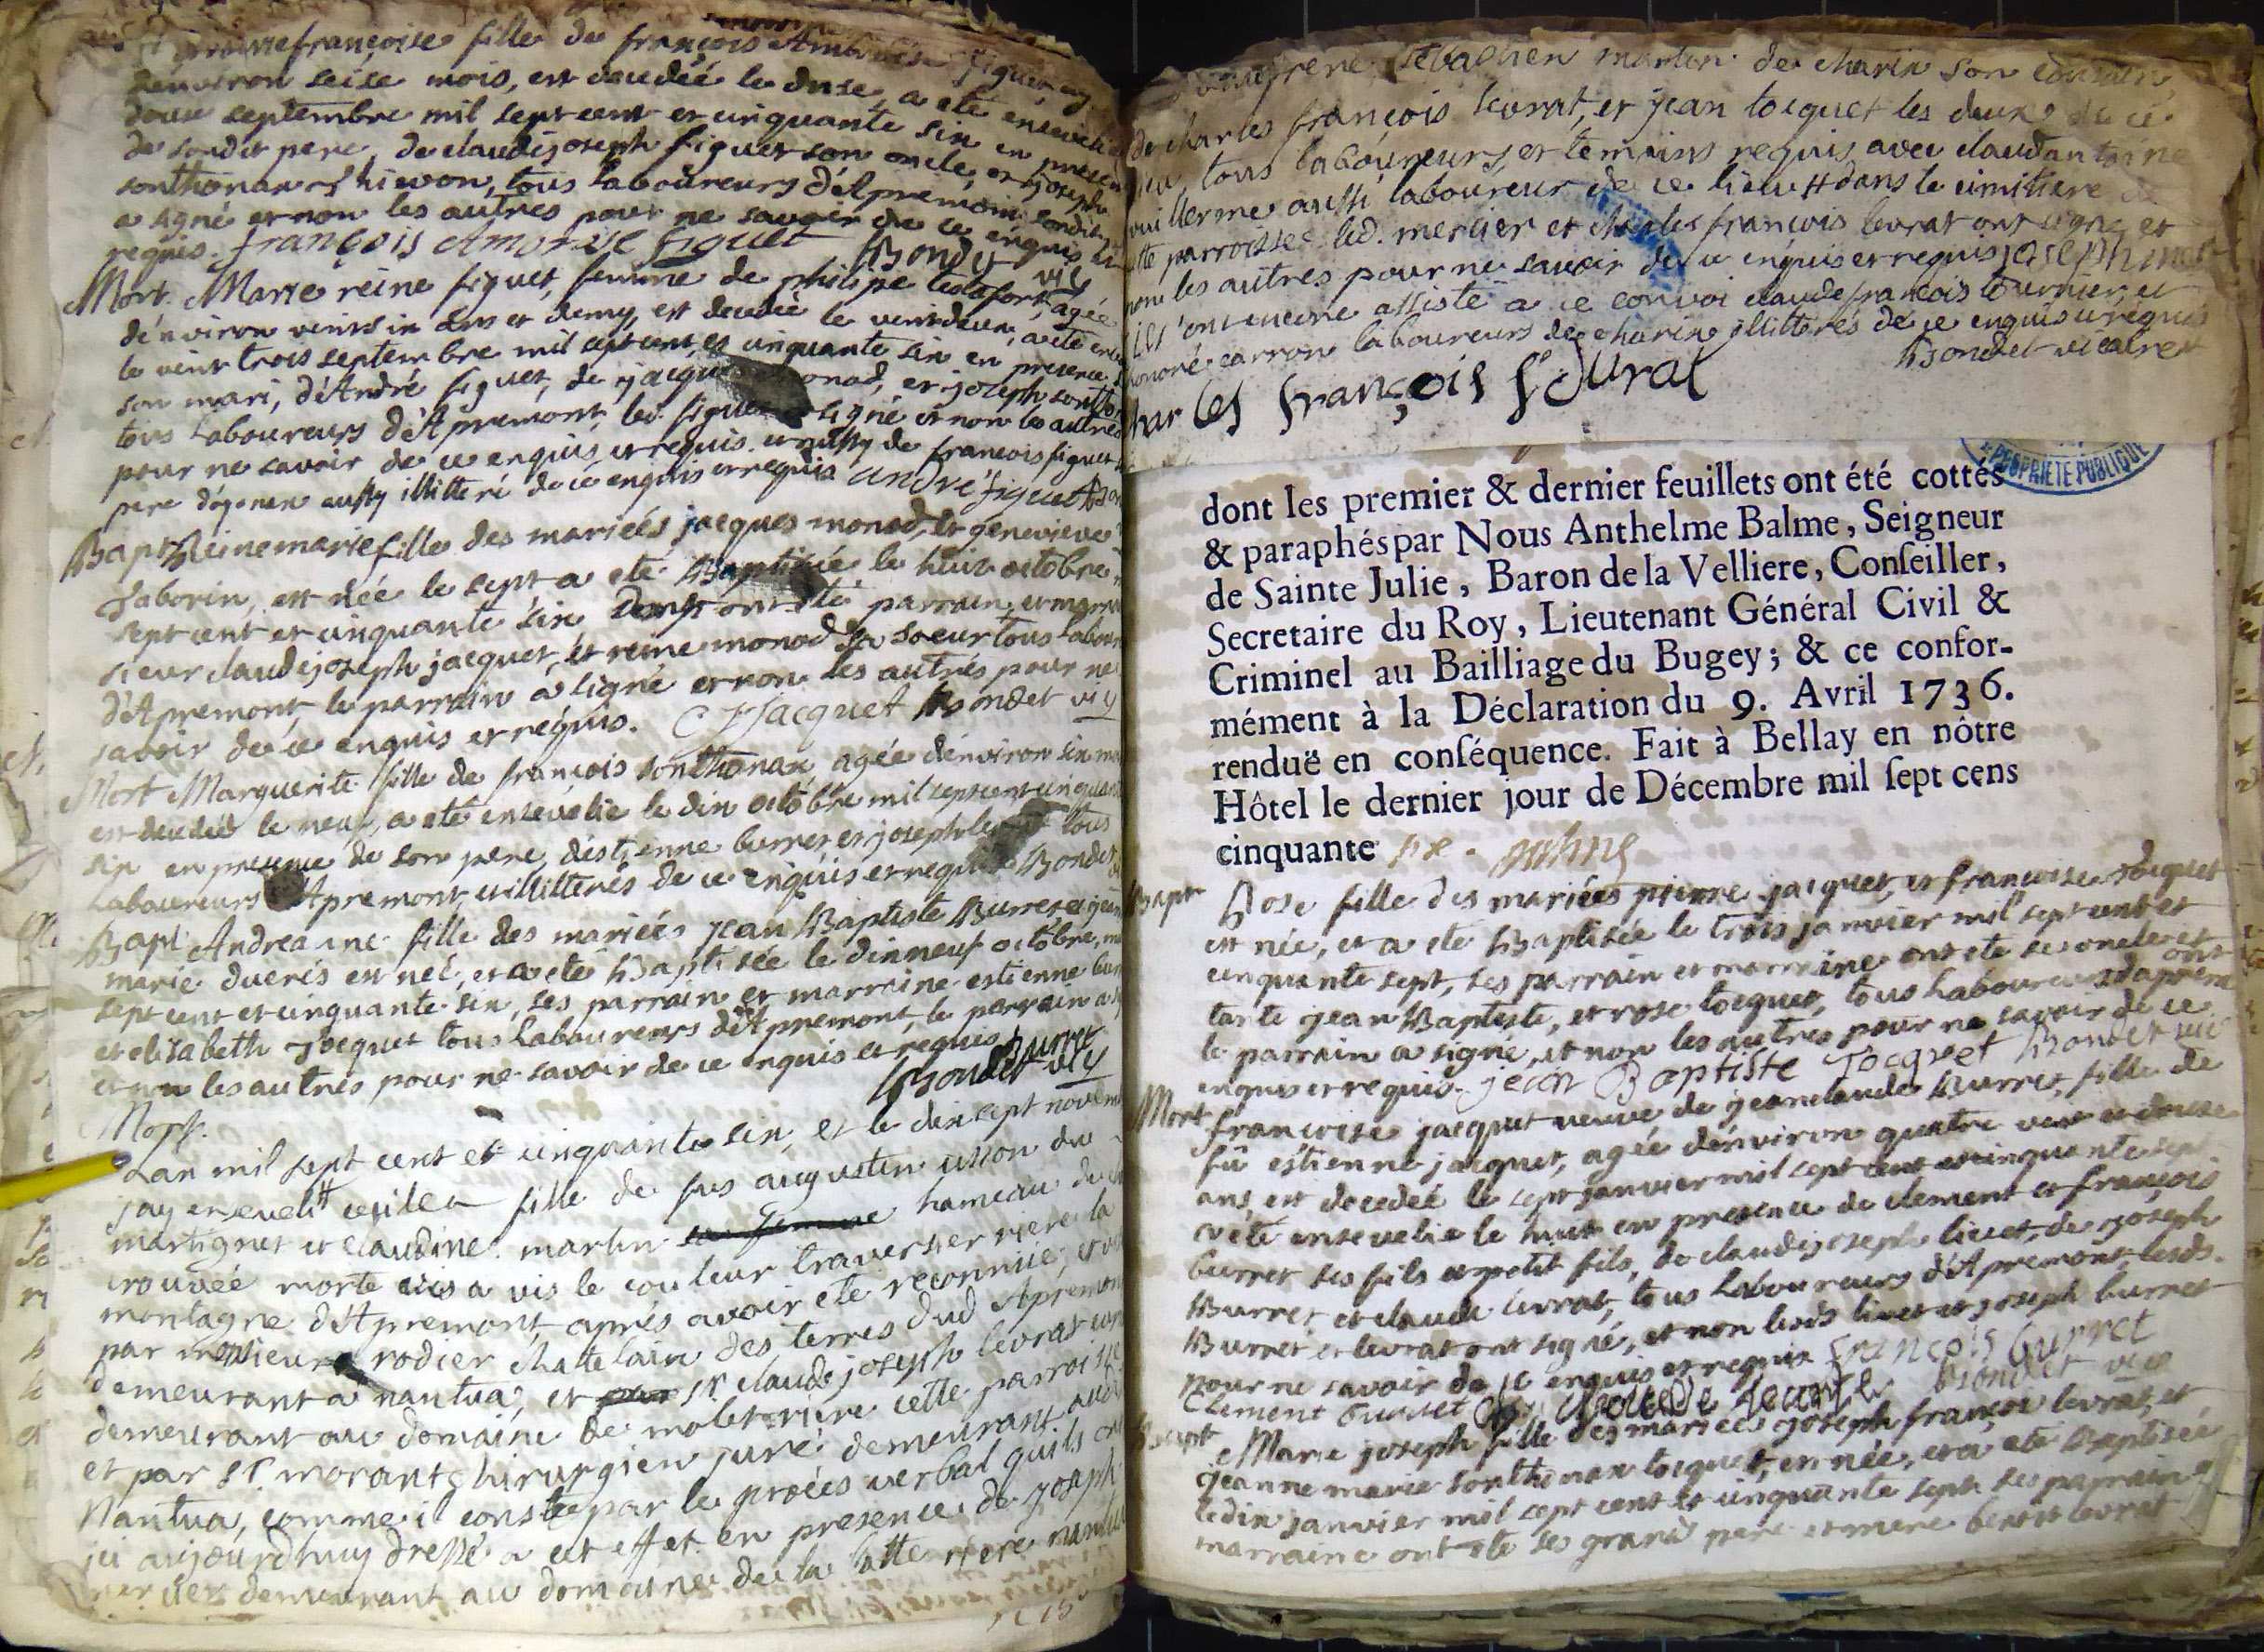 françoise fille de françois Ambroise figuet
denviron seise mois, est decedéé le onse, a eté ensevelie
douse septembre mil sept cent et cinquante six en presence
de sondit pere, de claudejoseph figuet son oncle, et joseph
sonthonax tous laboureurs d'Apremont
a signé et non les autres pour ne savoir de ce enquis et
requis. françois Ambroise figuet Bondet vic
Mort. Marie reine figuet, femme de philipe agée
d'environ vint six ans et demy, est decedéé le vintdeux, a eté
le vint trois septembre mil sept cent et cinquante six en presence
son mari, d'André figuet, de jacque monod, et joseph
tous Laboureurs d'Apremont, led. figuet a signé et non les autres
pour ne savoir de ce enquis et requis. et aussy de francois figuet
pere aussy illitteré de ce enquis et requis André figuet
Bapt Reinemarie fille des mariéés jacques monod, et genevieve
est néé le sept, a eté Baptiséé le huit octobre
sept cent et cinquante six ont eté parrain, et marraine
sieur claudejoseph jacquet, et reine monod sa soeur tous
d'Apremont, le parrain a signé et non les autrés pour ne
savoir de ce enquis et requis. C J Jacquet Bondet vic
Mort Marguerite fille de françois sonthonax agéé d'environ six
est decedéé le neuf, a eté ensevelie le dix octobre mil sept cent cinquante
six en presence de son pere, d'estienne burret et joseph tous
Laboureurs d'Apremont, et illitterés de ce enquis et requis Bondet
Bapt. Andrea fille des mariéés jean Baptiste Burret et
marie est néé, et a eté Baptiséé le dixneuf octobre,
sept cent et cinquante six, ses parrain et marraine estienne
et elisabeth Jocquet tous Laboureurs d'Apremont, le parrain a
et non les autrés pour ne savoir de ce enquis et requis Burret
Bondet vic
Mort.
Lan mil sept cent et cinquante six, et le dix sept
jay enseveli fille de augustin du
martignat et Claudine martin sa femme hameau de
trouvéé morte vis a vis le couleur traversier riere la
montagne d'Apremont aprés avoir eté reconnue,
par monsieur rodier chatelain des terres dud Apremont
demeurant a nantua, et par Sr. claude joseph levrat
demeurant au domaine de molet riere cette parroisse
et par Sr. morant chirurgien juré demeurant aud
Nantua, comme il conste par le procés verbal qu'ils
ici aujourdhuy dressé a cet effet en presence de joseph
demeurant au domaine de la riere nantua
sebastien martin de charix son
de charles françois levrat, et jean tocquet les deux de ce
lieu, tous laboureurs, et temoins requis avec claudantoine
vuillerme aussi laboureur de ce lieu # dans le cimitiere
cette parroisse led. mercier et charles françois levrat ont signé et
non les autres pour ne savoir de ce enquis et requis joseph
ont encore assisté a ce convoi claude françois tournier, et
honoré carron laboureurs de charix illitterés de ce enquis et requis
Bondet vicaire
Char les françois leVrat
PROPRIETE PUBLIQUE
dont les premier & dernier feuillets ont été cottés
& paraphés par Nous Anthelme Balme, Seigneur
de Sainte Julie, Baron de la Velliere, Conſeiller,
Secretaire du Roy, Lieutenant Général Civil &
Criminel au Bailliage du Bugey; & ce confor-
mément à la Déclaration du 9. Avril 1736.
renduë en conſéquence. Fait à Bellay en nôtre
Hôtel le dernier jour de Décembre mil ſept cens
cinquante six.
Bapt Rose fille des mariéés pierre jacquet, et françoise Jocquet
est néé, et a eté Baptiséé le trois janvier mil sept cent et
cinquante sept, ses parrain et marraine ont eté ses oncle et
tante jean Baptiste, et rose tocquet, tous Laboureurs d'Apremont
le parrain a signé, et non les autres pour ne savoir de ce
enquis et requis. jean Baptiste Jocquet Bondet vic
Mort francoise jacquet veuve de jeanclaude Burret, fille de
fû estienne jacquet, agéé d'environ quatre vint et douse
ans, est decedéé le sept janvier mil sept cent et cinquante sept
a eté ensevelie le huit en presence de clement et françois
burret ses fils et petit fils, de claudejoseph livet, de joseph
Burret et claude Levrat, tous Laboureurs d'Apremont, lesds.
Burret et levrat ont signé, et non lesds livet et joseph burret
pour ne savoir de ce enquis et requis françois burret
Clement burret Claude Leurat Bondet vic
Bapt Marie joseph fille des mariéés joseph françois levrat, et
jeanne marie sonthonax tocquet, est néé, et a eté Baptiséé
le dix janvier mil sept cent et cinquante sept ses parrain et
marraine ont eté ses grand pere et mere benoit levrat